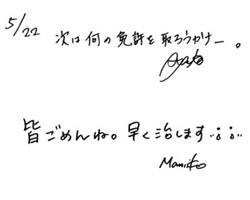 5/22
次は何の免許を取ろうかナー。
皆ごめんね。早く治します…¡¡…
Mamiko